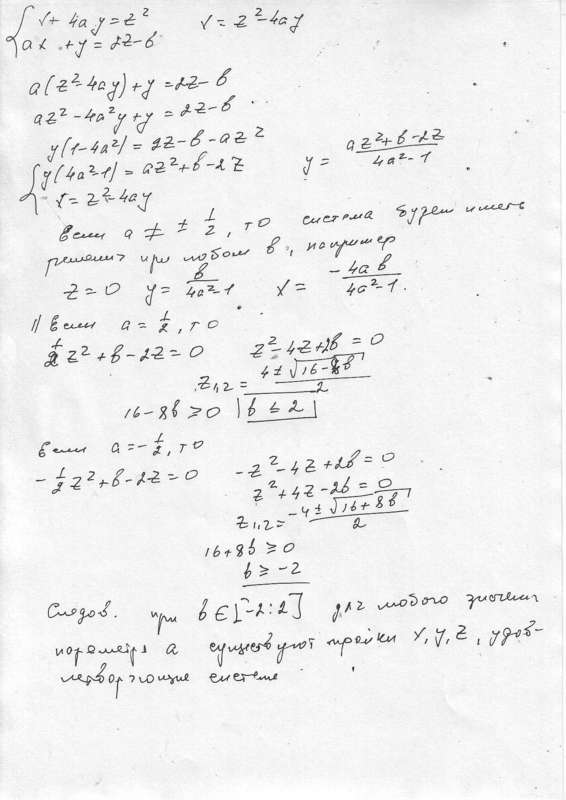 { x + 4ay = z²     x = z² - 4ay
{ ax + y = 2z - b
a(z² - 4ay) + y = 2z - b
az² - 4a²y + y = 2z - b
y(1 - 4a²) = 2z - b - az²
{ y(4a² - 1) = az² + b - 2z     y = (az² + b - 2z)/(4a² - 1)
{ x = z² - 4ay
Если a ≠ ± 1/2, то система будет иметь
решения при любом b, например
z = 0   y = b/(4a² - 1)   x = -4ab/(4a² - 1).
1) Если a = 1/2, то
1/2 z² + b - 2z = 0     z² - 4z + 2b = 0
z₁,₂ = (4 ± √(16 - 8b))/2
16 - 8b ≥ 0   | b ≤ 2 |
Если a = -1/2, то
-1/2 z² + b - 2z = 0     -z² - 4z + 2b = 0
z² + 4z - 2b = 0
z₁,₂ = (-4 ± √(16 + 8b))/2
16 + 8b ≥ 0
b ≥ -2
Следов. при b ∈ [-2; 2] для любого значения
параметра a существуют тройки x, y, z, удов-
летворяющие системе